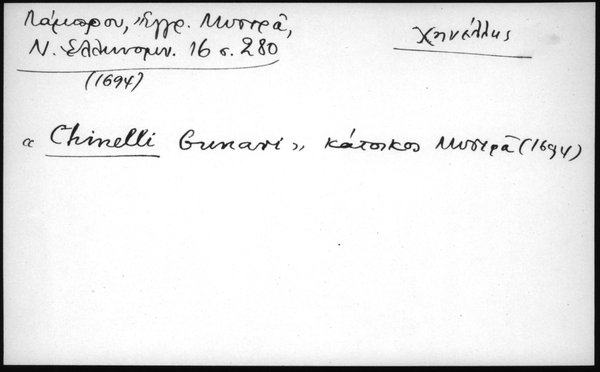 Λάμπρου, Ἔγγρ. Μυστρᾶ,
Χηνέλλης
Ν. Ἑλληνομν. 16 σ. 280
(1694)
« Chinelli Gunari », κάτοικος Μυστρᾶ (1694)